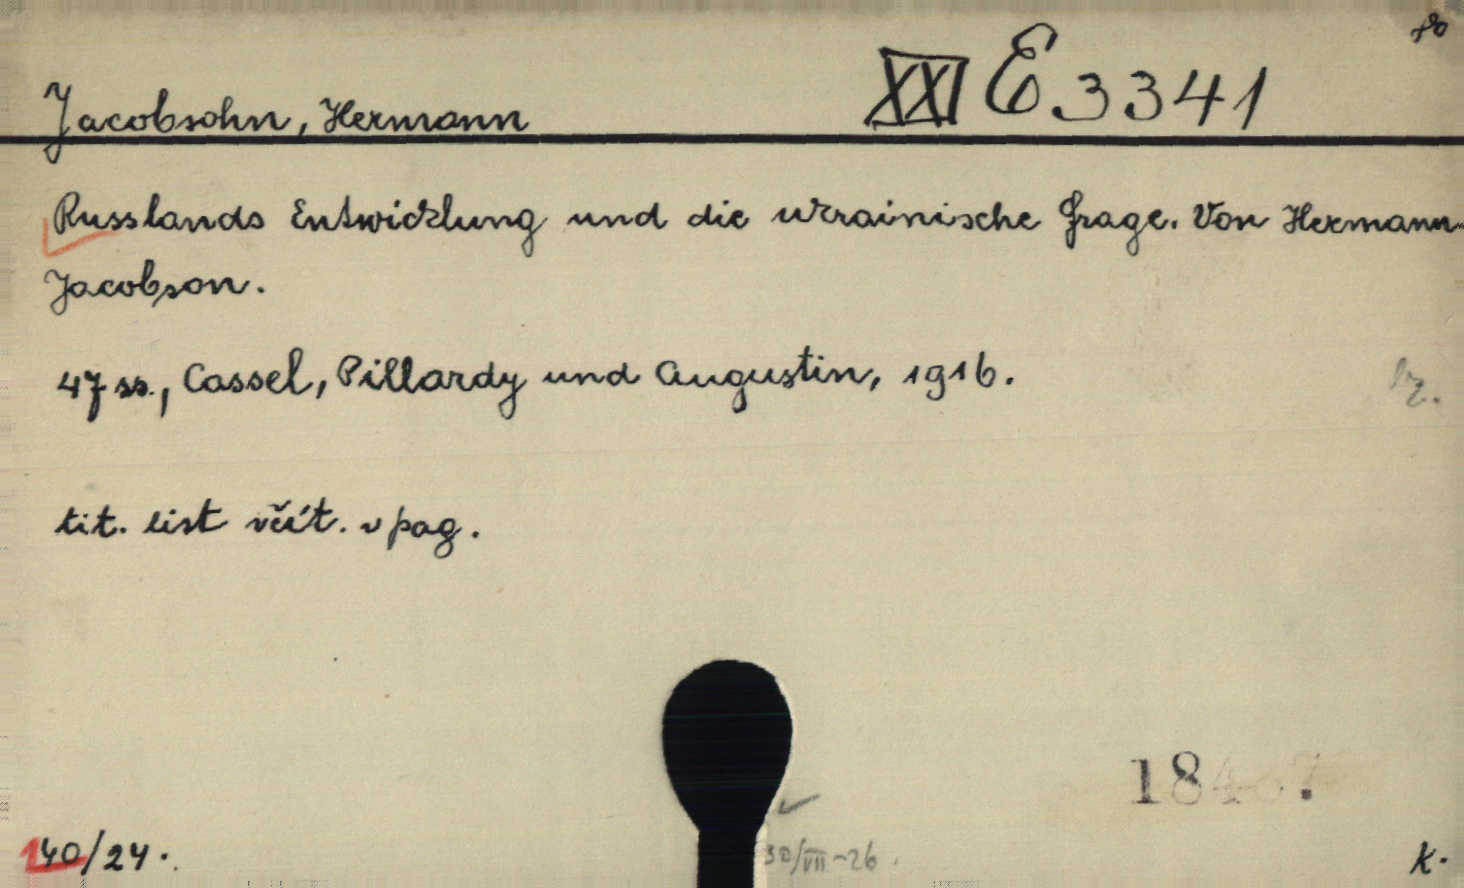 80
Jacobsohn, Hermann
XXI E 3341
Russlands Entwicklung und die ukrainische Frage. Von Hermann
Jacobson.
47 ss., Cassel, Pillardy und Augustin, 1916.
tit. list včít. v pag.
140/24.
30/VII-26
K.